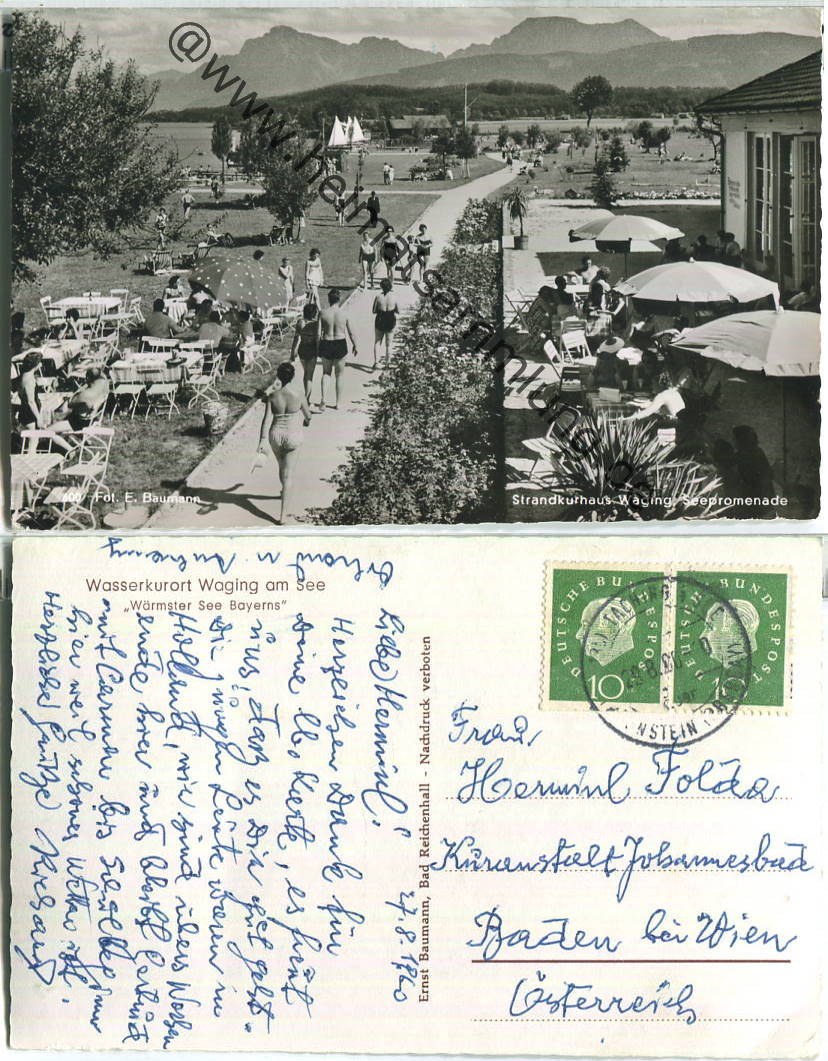 @www.heimatsammlung.de
800 Fot. E. Baumann
Strandkurhaus Waging, Seepromenade
Wasserkurort Waging am See
„Wärmster See Bayerns"
Ernst Baumann, Bad Reichenhall - Nachdruck verboten
DEUTSCHE BUNDESPOST
10
DEUTSCHE BUNDESPOST
10
27.8.1960
Liebe Hermine!
Herzlichen Dank für
Deine lb. Karte, es freut
uns, daß es Dir gut geht.
Die jungen Leute waren in
Holland, wir sind übers Wochen
ende hier und bleibt
mit Carmen bis
hier weil schönes Wetter ist.
Herzliche Grüße
Frau
Hermine Folda
Kuranstalt Johannesbad
Baden bei Wien
Österreich